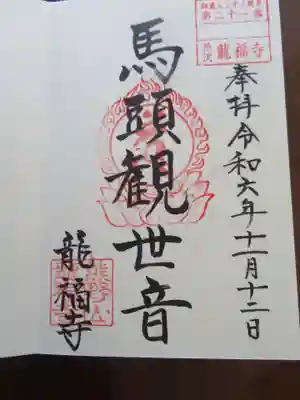 第二十一番
龍福寺
奉拝令和六年十一月十二日
馬頭観世音
龍福寺